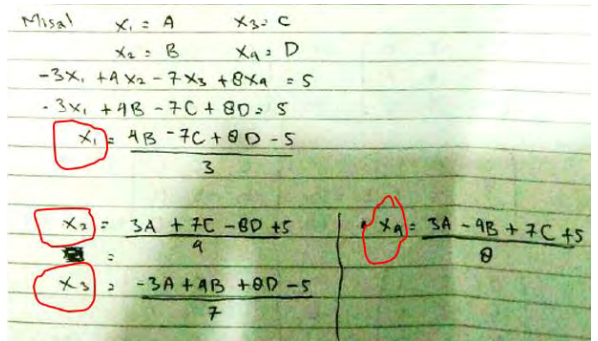 Misal x₁ = A x₃ = C
x₂ = B x₄ = D
-3x₁ + 4x₂ - 7x₃ + 8x₄ = 5
-3x₁ + 4B - 7C + 8D = 5
x₁ = (4B - 7C + 8D - 5) / 3
x₂ = (3A + 7C - 8D + 5) / 4
=
x₃ = (-3A + 4B + 8D - 5) / 7
x₄ = (3A - 4B + 7C + 5) / 8